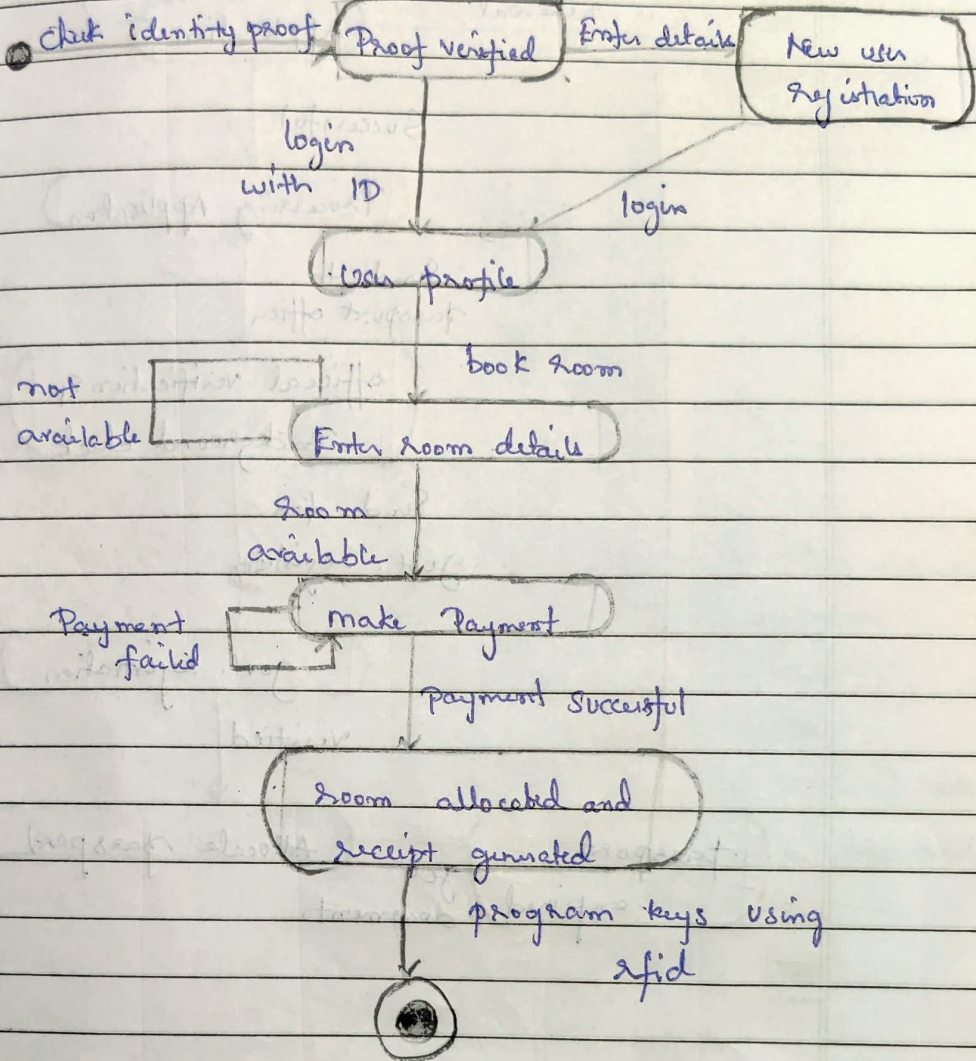 Check identity proof
Proof verified
Enter details
New user
registration
login
with ID
login
User profile
book room
not
available
Enter room details
room
available
make Payment
Payment
failid
payment successful
room allocated and
receipt generated
program keys using
rfid